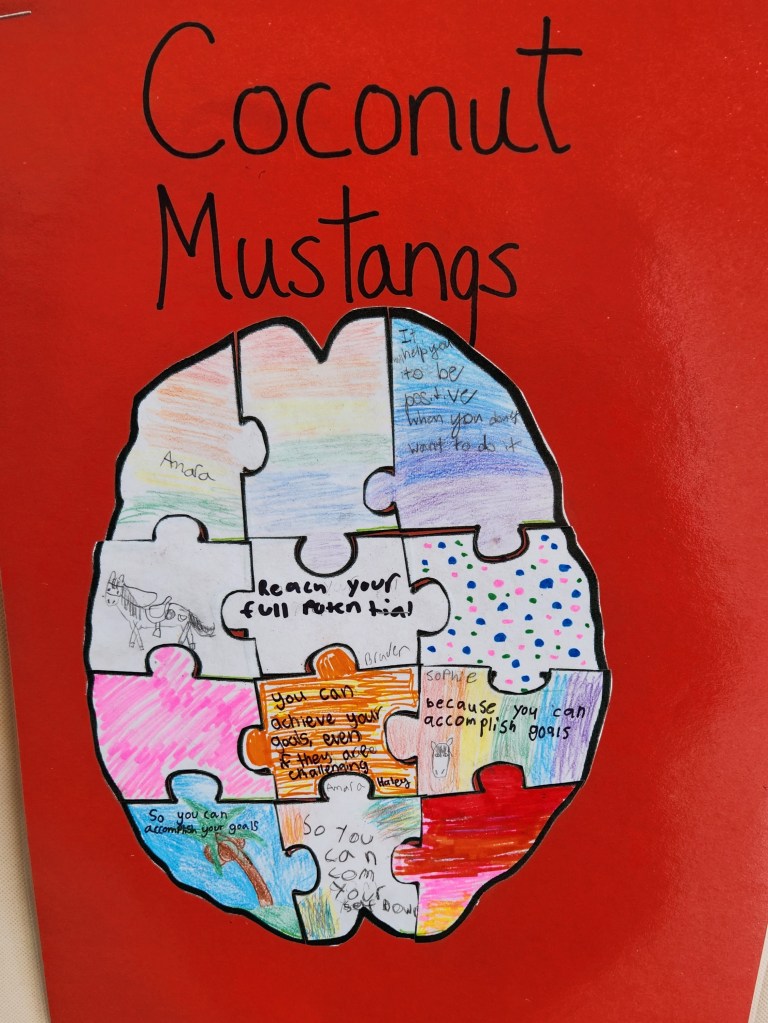 Coconut
Mustangs
It
help you
to be
positive
when you don't
want to do it
Amara
Reach your
full Potential
Braden
you can
achieve your
goals, even
if they are
challenging
Haley
Sophie
because you can
accomplish goals
So you can
accomplish your goals
Amara
So you
can
com
Your
self Down